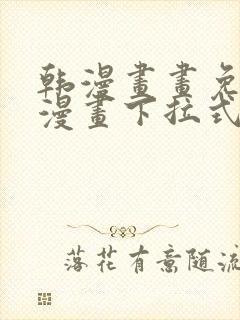 韩漫畫畫免
漫畫下拉式
落花有意随流